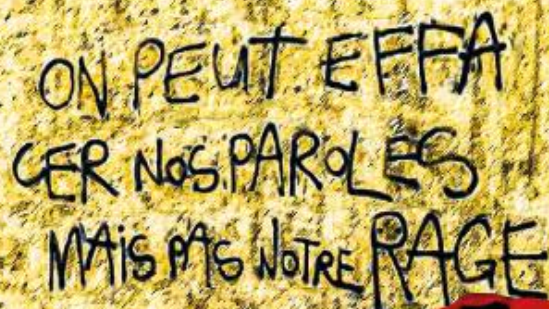 ON PEUT EFFA
CER NOS PAROLES
MAiS PAS NOTRE RAGE